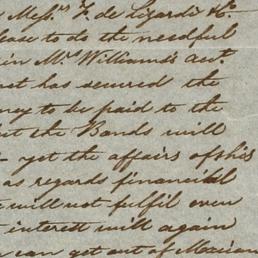 Mess.rs F. de Lizardi & Co.
to do the needful
in Mr Williams's acct.
has secured the
to be paid to the
the Bonds will
yet the affairs of this
as regards financial
will not fulfil even
interest will again
can get out of